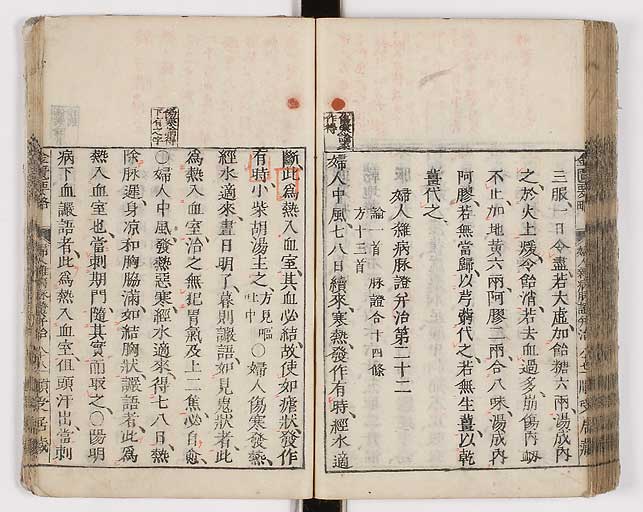 三服一日令盡若大虛加飴糖六兩湯成內
之於火上煖令飴消若去血過多崩傷內衂
不止加地黃六兩阿膠二兩合八味湯成內
阿膠若無當歸以芎藭代之若無生薑以乾
薑代之
婦人雜病脉證并治第二十二
論一首 脉證合十四條
方十三首
婦人中風七八日續來寒熱發作有時經水適
斷此為熱入血室其血必結故使如瘧狀發作
有時小柴胡湯主之方見嘔吐中○婦人傷寒發熱
經水適來晝日明了暮則讝語如見鬼狀者此
為熱入血室治之無犯胃氣及上二焦必自愈
○婦人中風發熱惡寒經水適來得七八日熱
除脉遲身涼和胸脇滿如結胸狀讝語者此為
熱入血室也當刺期門隨其實而取之○陽明
病下血讝語者此為熱入血室但頭汗出當刺
金匱要略